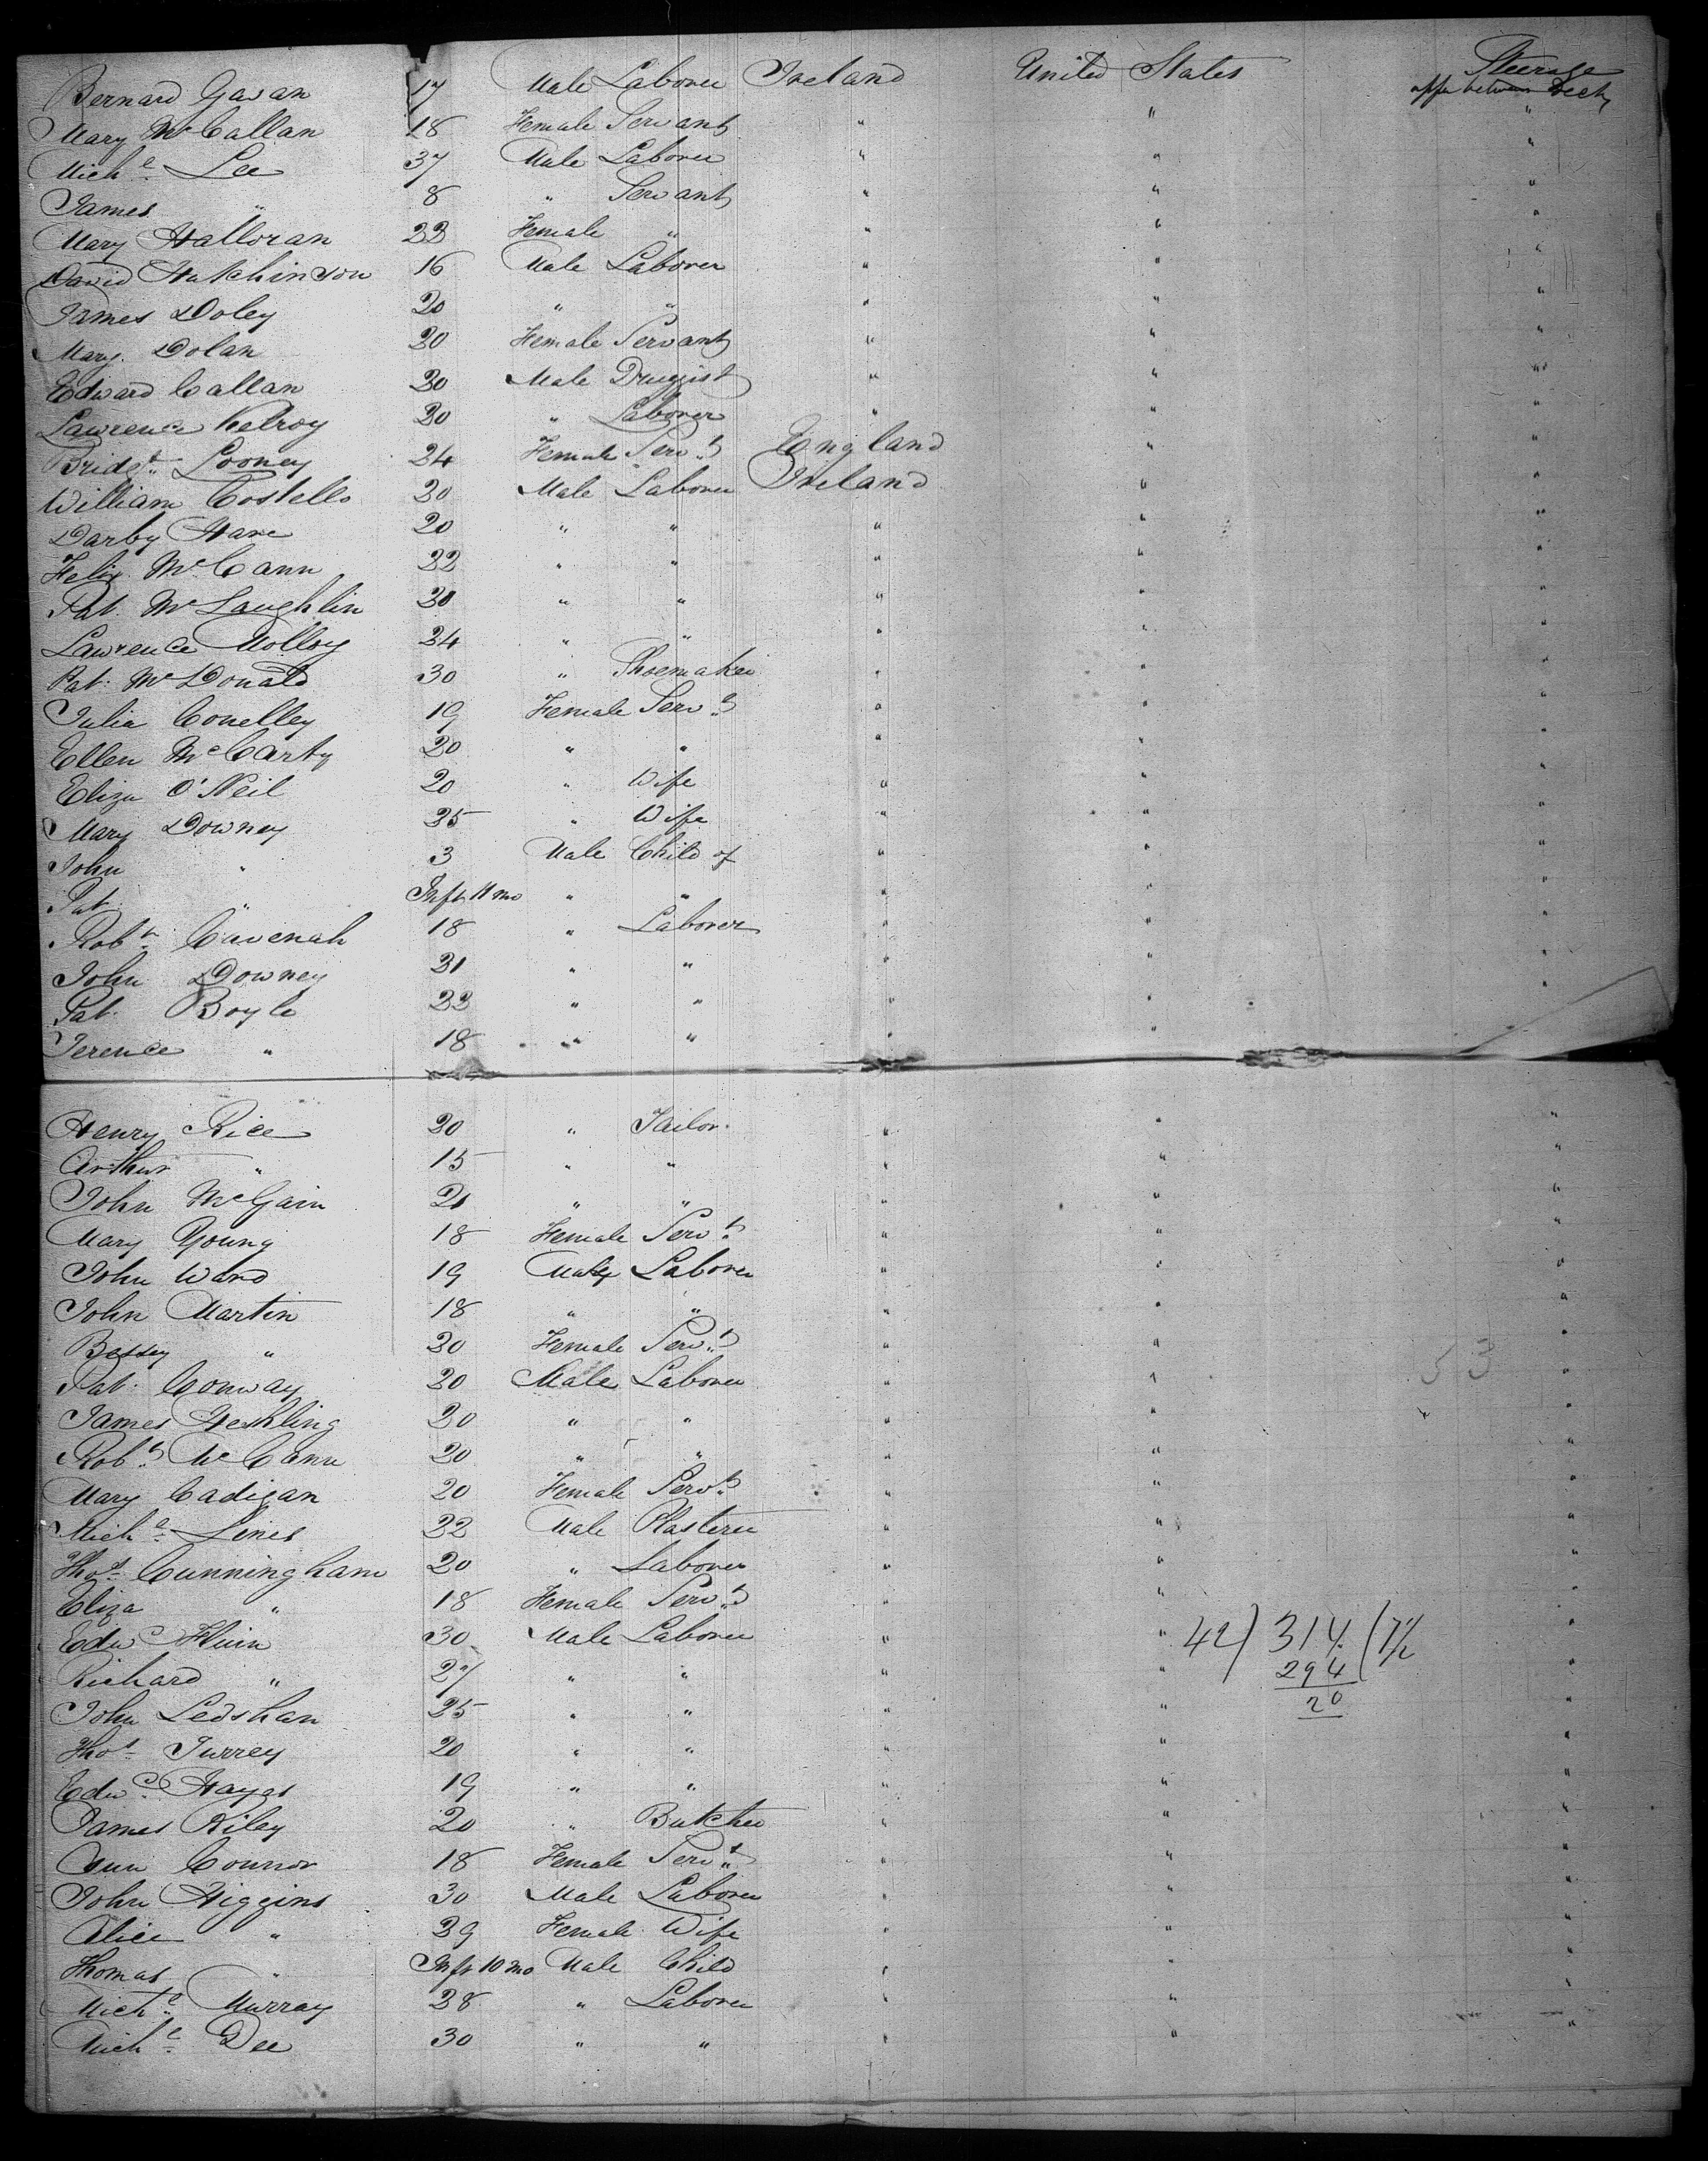 Bernard Gavan 17 Male Laborer Ireland United States Steerage
upper between Decks
Mary McCallan 18 Female Servant " " "
Michl Lee 37 Male Laborer " " "
James " 8 " Servant " " "
Mary Halloran 22 Female " " " "
David Hutchinson 16 Male Laborer " " "
James Doley 20 " " " " "
Mary Dolan 20 Female Servant " " "
Edward Callan 20 Male Druggist " " "
Lawrence Kelroy 20 " Laborer " " "
Bridgt Looney 24 Female Servt England " "
William Costello 20 Male Laborer Ireland " "
Darby Hare 20 " " " " "
Felix McCann 22 " " " " "
Pat. McLaughlin 30 " " " " "
Lawrence Molloy 24 " " " " "
Pat. McDonald 30 " Shoemaker " " "
Julia Conelley 19 Female Servt " " "
Ellen McCarty 20 " " " " "
Eliza O'Neil 20 " Wife " " "
Mary Downey 25 " Wife " " "
John " 3 Male Child of " " "
Pat. " Inft 11 mo " " " " "
Robt Cavenah 18 " Laborer " " "
John Downey 21 " " " " "
Pat. Boyle 22 " " " " "
Terence " 18 " " " "
Henry Rice 20 " Tailor " " "
Arthur " 15 " " " " "
John McGain 21 " " " " "
Mary Young 18 Female Servt " " "
John Ward 19 Male Laborer " " "
John Martin 18 " " " " "
Bessey " 20 Female Servt " " "
53
Pat. Conway 20 Male Laborer " " "
James 20 " " " " "
Robt McCann 20 " " " " "
Mary Cadigan 20 Female Servt " " "
Michl Lines 22 Male Plasterer " " "
Thos Cunningham 20 " Laborer " " "
Eliza " 18 Female Servt " " "
Edwd 30 Male Laborer " " "
42) 314 (7½
Richard " 27 " " " " "
294
John Ledshan 25 " " " " "
20
Thos Turrey 20 " " " " "
Edwd Hayes 19 " " " " "
James Riley 20 " Butcher " " "
Ann Connor 18 Female Servt " " "
John Higgins 30 Male Laborer " " "
Alice " 29 Female Wife " " "
Thomas " Inft 10 mo Male Child " " "
Michl Murray 28 " Laborer " " "
Michl Dee 30 " " " " "